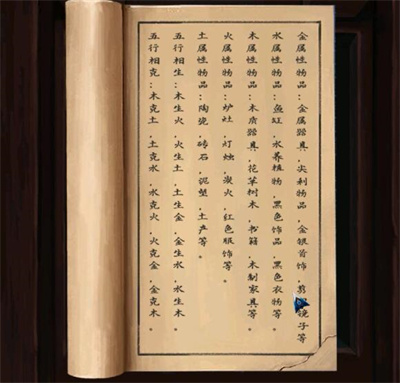 金属性物品：金属具，尖利物品，金银首饰，剪镜子等
水属性物品：鱼缸，水养植物，黑色饰品，黑色衣物等。
木属性物品：木质具，花草树木，书籍，木制家具等。
火属性物品：炉灶，灯烛，火，红色服饰等。
土属性物品：陶瓷，砖石，泥塑，土产等。
五行相生：木生火，火生土，土生金，金生水，水生木。
五行相克：木克土，土克水，水克火，火克金，金克木。